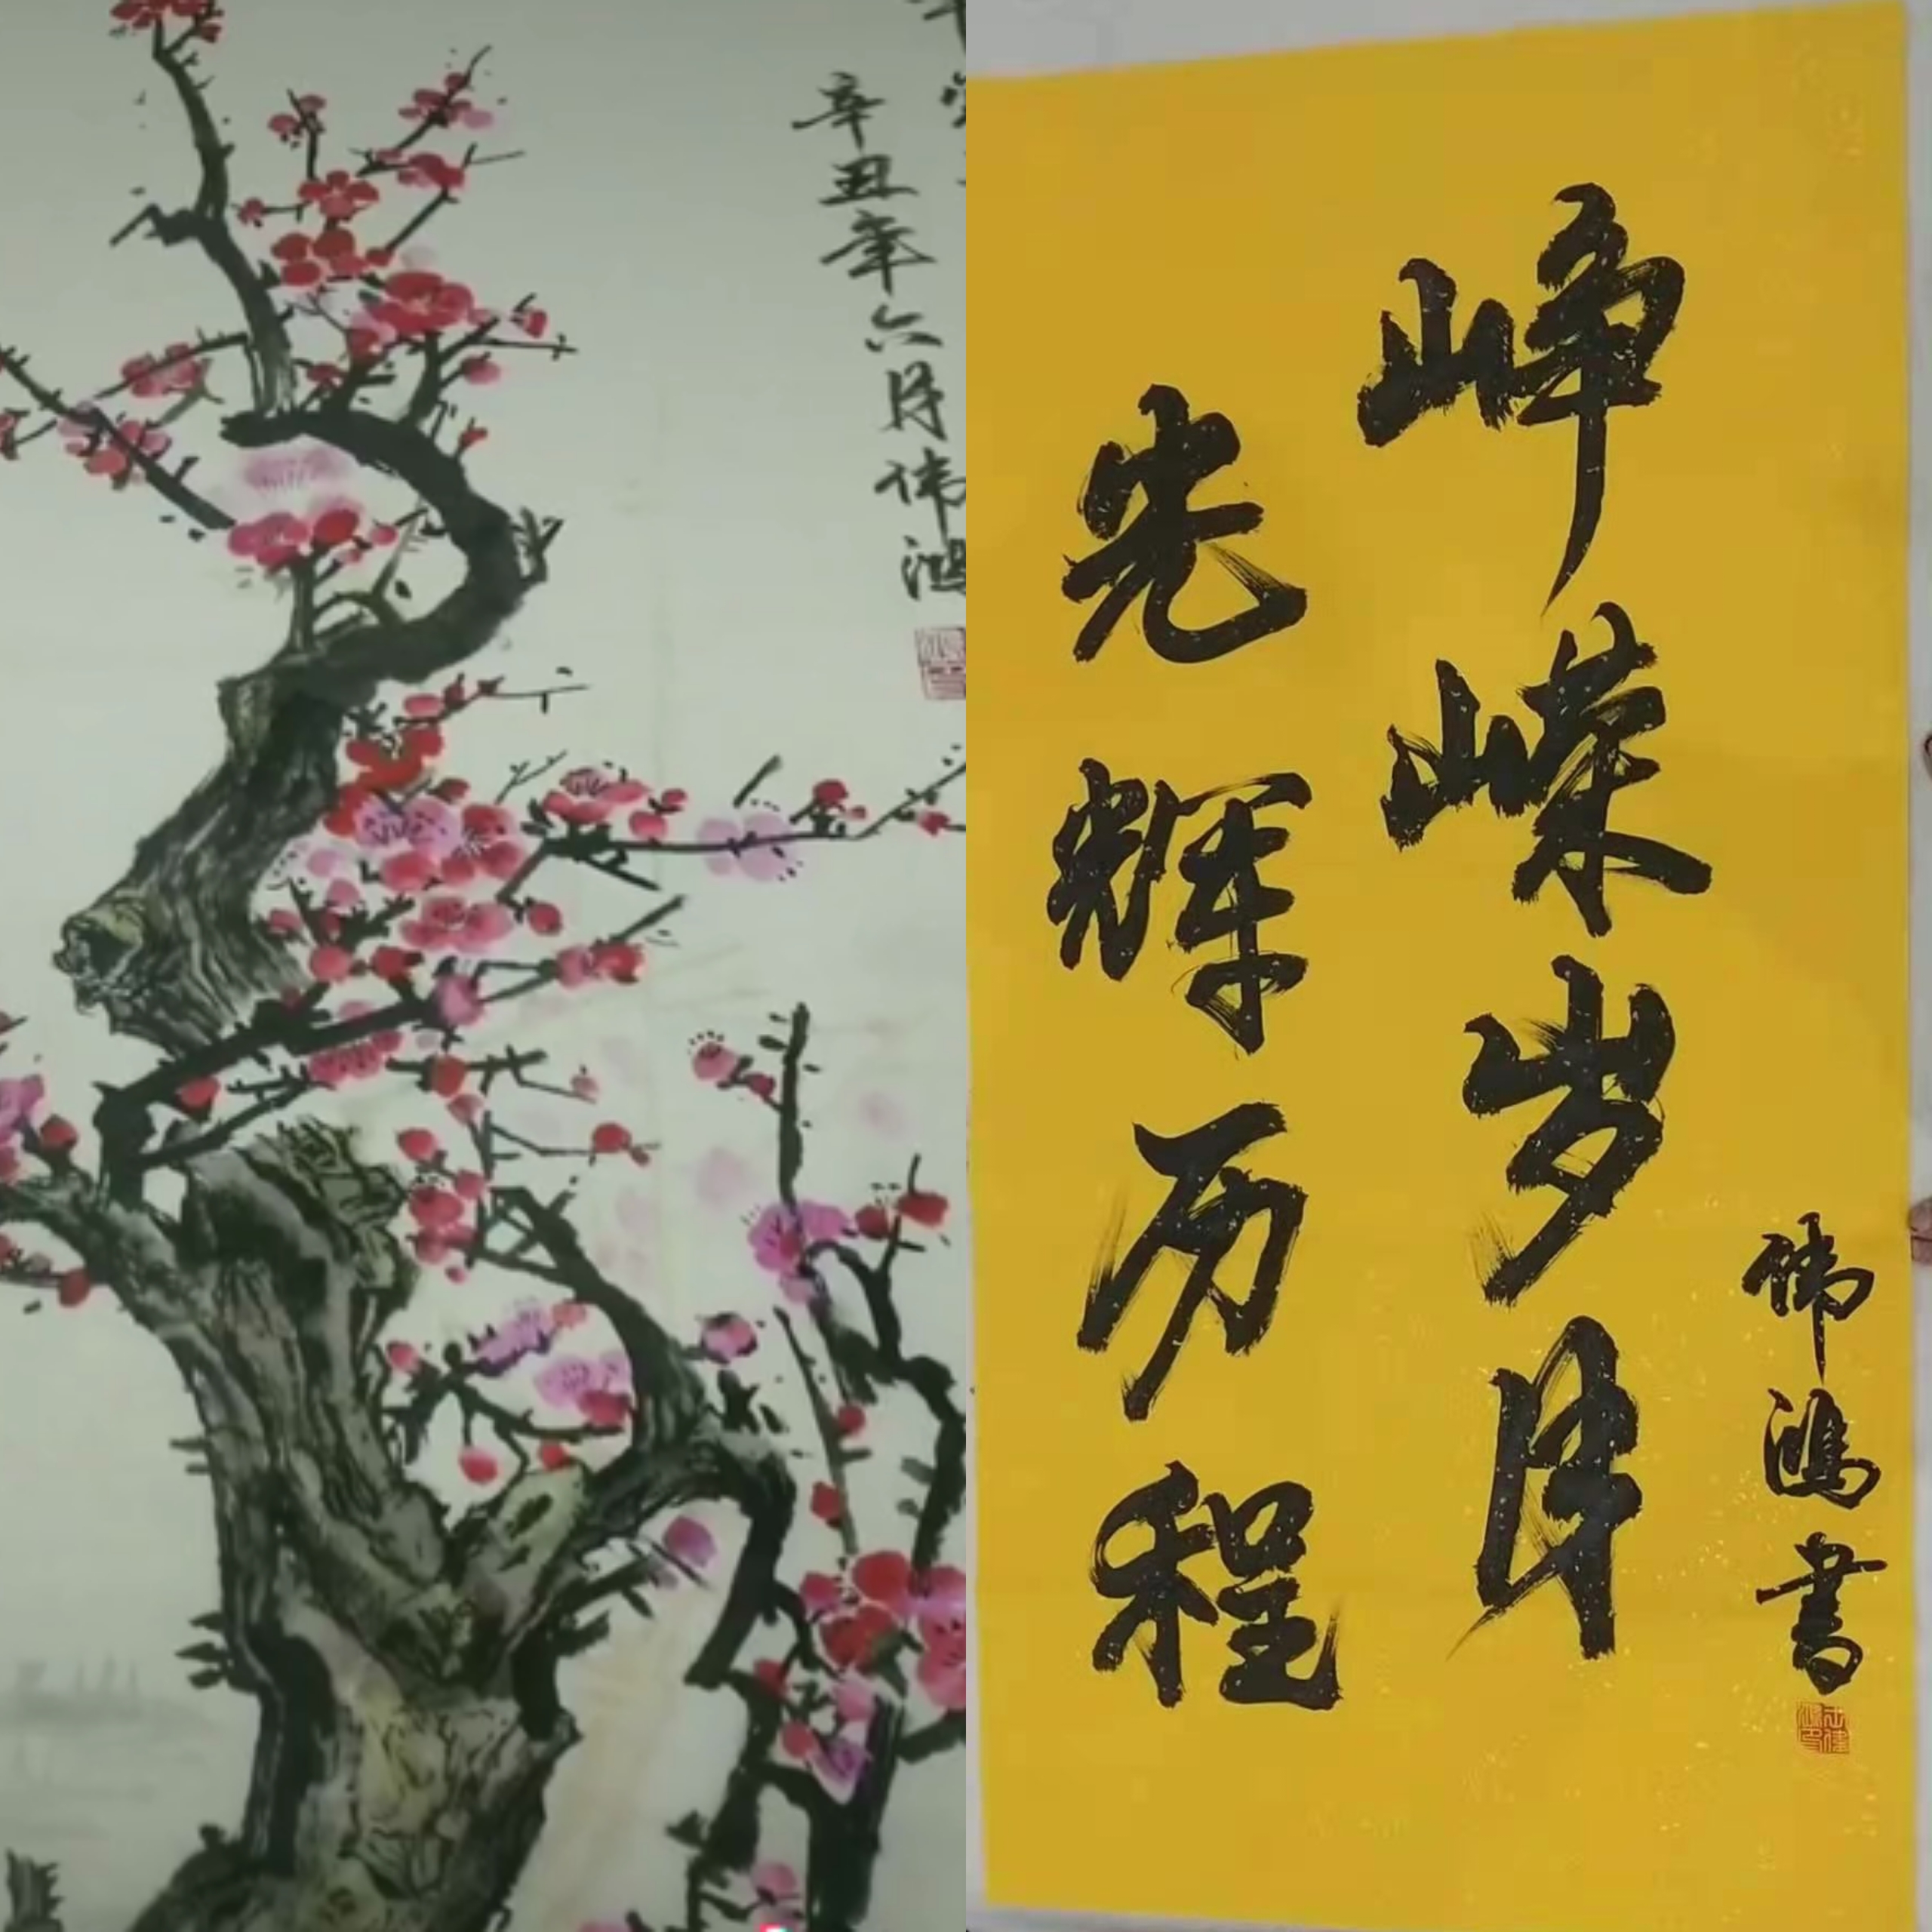 辛丑年六月伟鸿
峥嵘岁月
光辉历程
伟鸿書